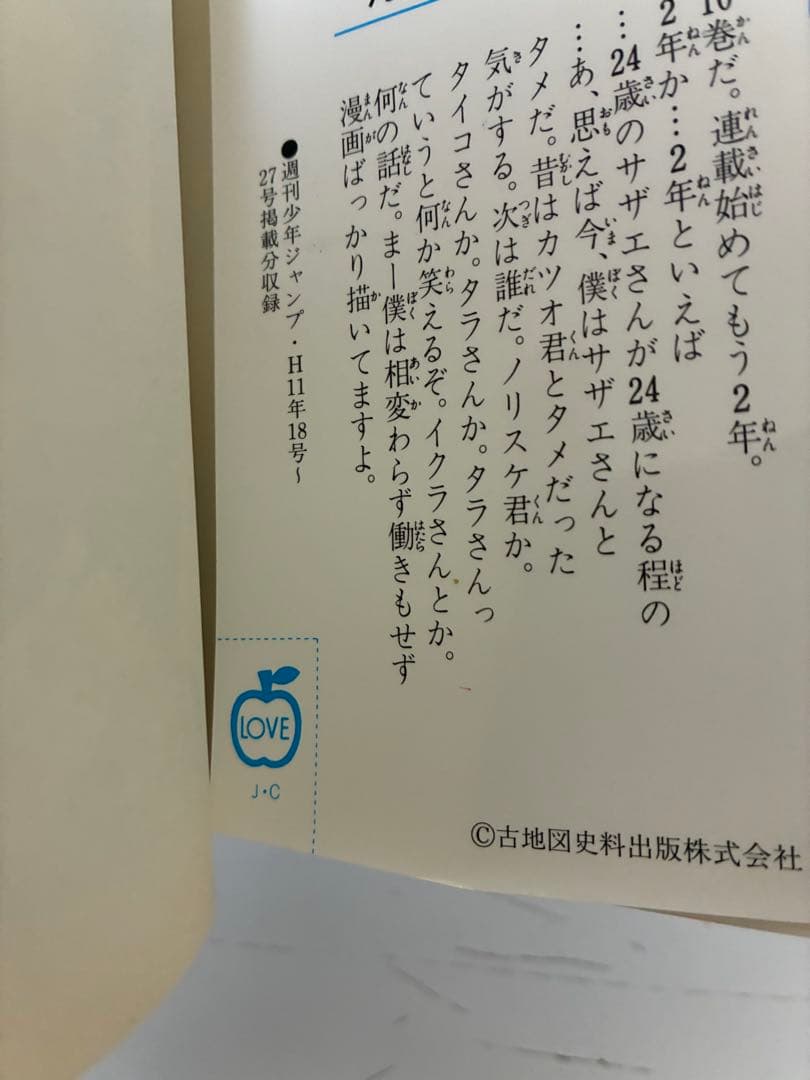 10巻だ。連載始めてもう2年。
2年か…2年といえば
…24歳のサザエさんが24歳になる程の
…あ、思えば今、僕はサザエさんと
タメだ。昔はカツオ君とタメだった
気がする。次は誰だ。ノリスケ君か。
タイコさんか。タラさんか。タラさんっ
ていうと何か笑えるぞ。イクラさんとか。
何の話だ。まー僕は相変わらず働きもせず
漫画ばっかり描いてますよ。
●週刊少年ジャンプ・H11年18号〜
27号掲載分収録
LOVE
J・C
©古地図史料出版株式会社